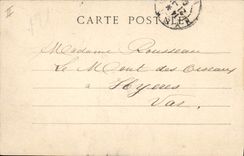 CARTE POSTALE
Madame Rousseau
Le Mont des Oiseaux
à Hyères
Var.